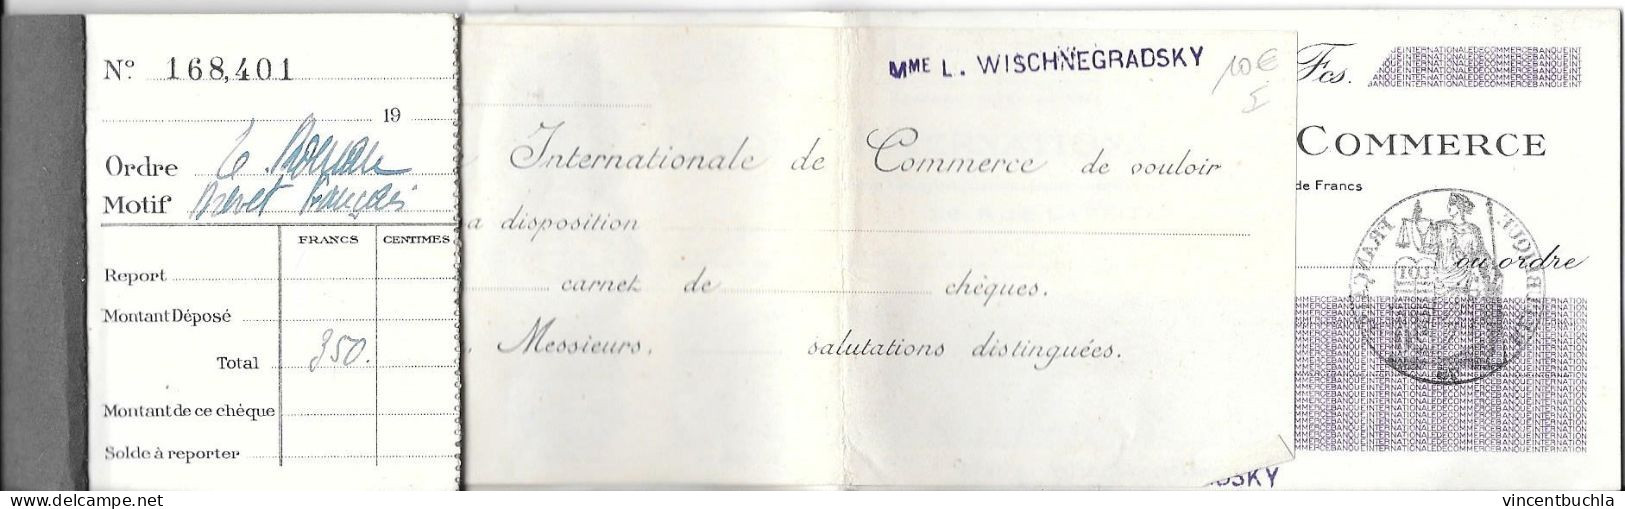 Nº 168,401
19
Ordre
Motif Brevet français
FRANCS CENTIMES
Report
Montant Déposé
Total 350.
Montant de ce chèque
Solde à reporter
MME L. WISCHNEGRADSKY
10€
Internationale de Commerce de vouloir
a disposition
carnet de chèques.
Messieurs, salutations distinguées.
Fcs.
COMMERCE
de Francs
ou ordre
SKY
www.delcampe.net
vincentbuchla